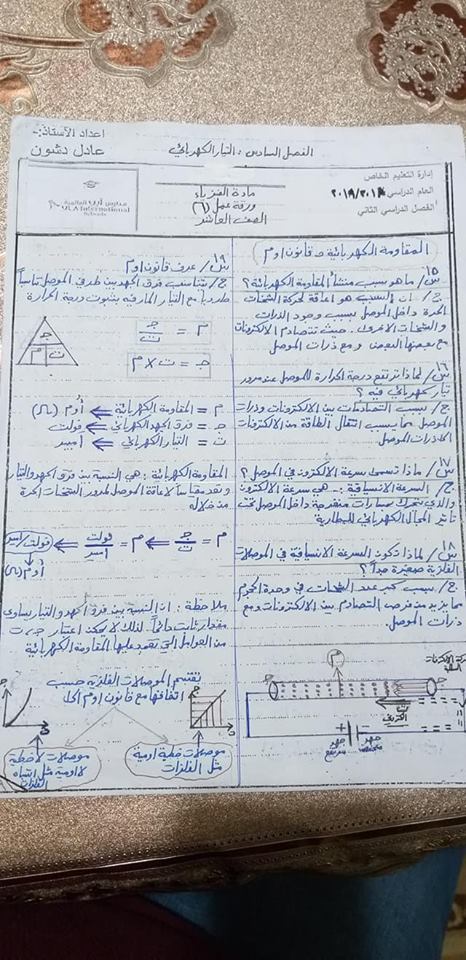 اعداد الأستاذ:-
عادل دشون
الفصل السادس : التيار الكهربائي
إدارة التعليم الخاص
العام الدراسي ٢٠١٩/٢٠١٨
الفصل الدراسي الثاني
مادة الفيزياء
ورقة عمل (٦)
الصف العاشر
ULA International
Schools
المقاومة الكهربائية - قانون اوم
س١٥/ ما هو سبب منشأ المقاومة الكهربائية؟
ج/ ان السبب هو اعاقة لحركة الشحنات
الحرة داخل الموصل بسبب وجود الذرات
والشحنات الاخرى. حيث تتصادم الالكترونات
مع بعضها البعض ومع ذرات الموصل
س١٦/ لماذا ترتفع درجة الحرارة للموصل عند مرور
تيار كهربائي فيه ؟
ج/ بسبب التصادمات بين الالكترونات وذرات
الموصل مما يسبب انتقال الطاقة من الالكترونات
الى ذرات الموصل
س١٧/ ماذا تسمى سرعة الالكترون في الموصل ؟
ج/ السرعة الانسياقية :- هي سرعة الالكترون
والذي يتحرك بمسارات متعرجة داخل الموصل تحت
تأثير المجال الكهربائي للبطارية
س١٨/ لماذا تكون السرعة الانسياقية في الموصلات
الفلزية صغيرة جداً ؟
ج/ بسبب كبر عدد الشحنات في وحدة الحجوم
مما يزيد من فرص التصادم بين الالكترونات ومع
ذرات الموصل.
حركة الالكترونات
م
ت
الكتروني
+
جهد
مرتفع
جهد
منخفض
س١٩/ عرف قانون اوم
ج/ يتناسب فرق الجهد بين طرفي الموصل تناسباً
طردياً مع التيار المار فيه بثبوت درجة الحرارة
م = جـ / ت
جـ = ت × م
جـ
م ت
م = المقاومة الكهربائية ⇐ أوم (Ω)
جـ = فرق الجهد الكهربائي ⇐ فولت
ت = التيار الكهربائي ⇐ امبير
المقاومة الكهربائية : هي النسبة بين فرق الجهد والتيار
وتعد مقياساً لاعاقة الموصل لمرور الشحنات الحرة
من خلاله
م = جـ / ت ⇐ م = فولت / امبير ⇐ فولت/امبير
أوم (Ω)
ملاحظة : ان النسبة بين فرق الجهد والتيار يساوي
مقدار ثابت دائماً. لذلك لا يمكن اعتبار جـ، ت
من العوامل التي تعتمد عليها المقاومة الكهربائية
تقسم الموصلات الفلزية حسب
اتفاقها مع قانون اوم الى
موصلات خطية اومية
مثل الفلزات
موصلات لا خطية
لا اومية مثل اشباه
الفلزات